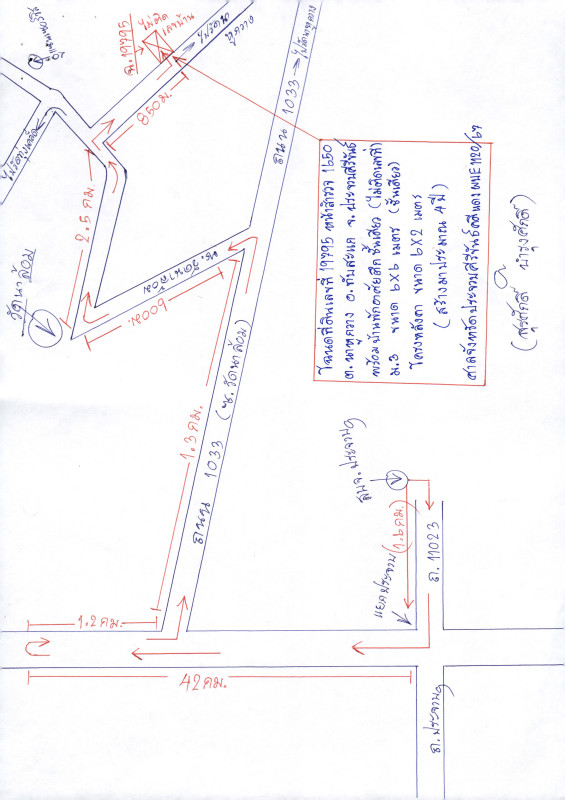 โฉนดที่ดินเลขที่ 19795 หน้าสำรวจ 1650
ต. นาหูกวาง อ. ทับสะแก จ. ประจวบคีรีขันธ์
พร้อมบ้านพักอาศัยตึกชั้นเดียว (ไม่ติดเลขที่)
ม.3 ขนาด 6x6 เมตร (ชั้นเดียว)
โครงหลังคา ขนาด 6x2 เมตร
(สร้างมาประมาณ 4 ปี)
ศาลจังหวัดประจวบคีรีขันธ์ คดีแดง ผบE1120/67
ฉ.19795
ไม่ติด
เลขบ้าน
850 ม.
2.5 กม.
วัดนาล้อม
ซ. วัดนาล้อม
600 ม.
1.3 กม.
ถนน 1033 (ซ. วัดนาล้อม)
ถนน 1033
1.2 กม.
42 กม.
สบจ. ประจวบฯ
แยกประจวบ (1.6 กม.)
ถ. 11023
ถ. ประจวบฯ